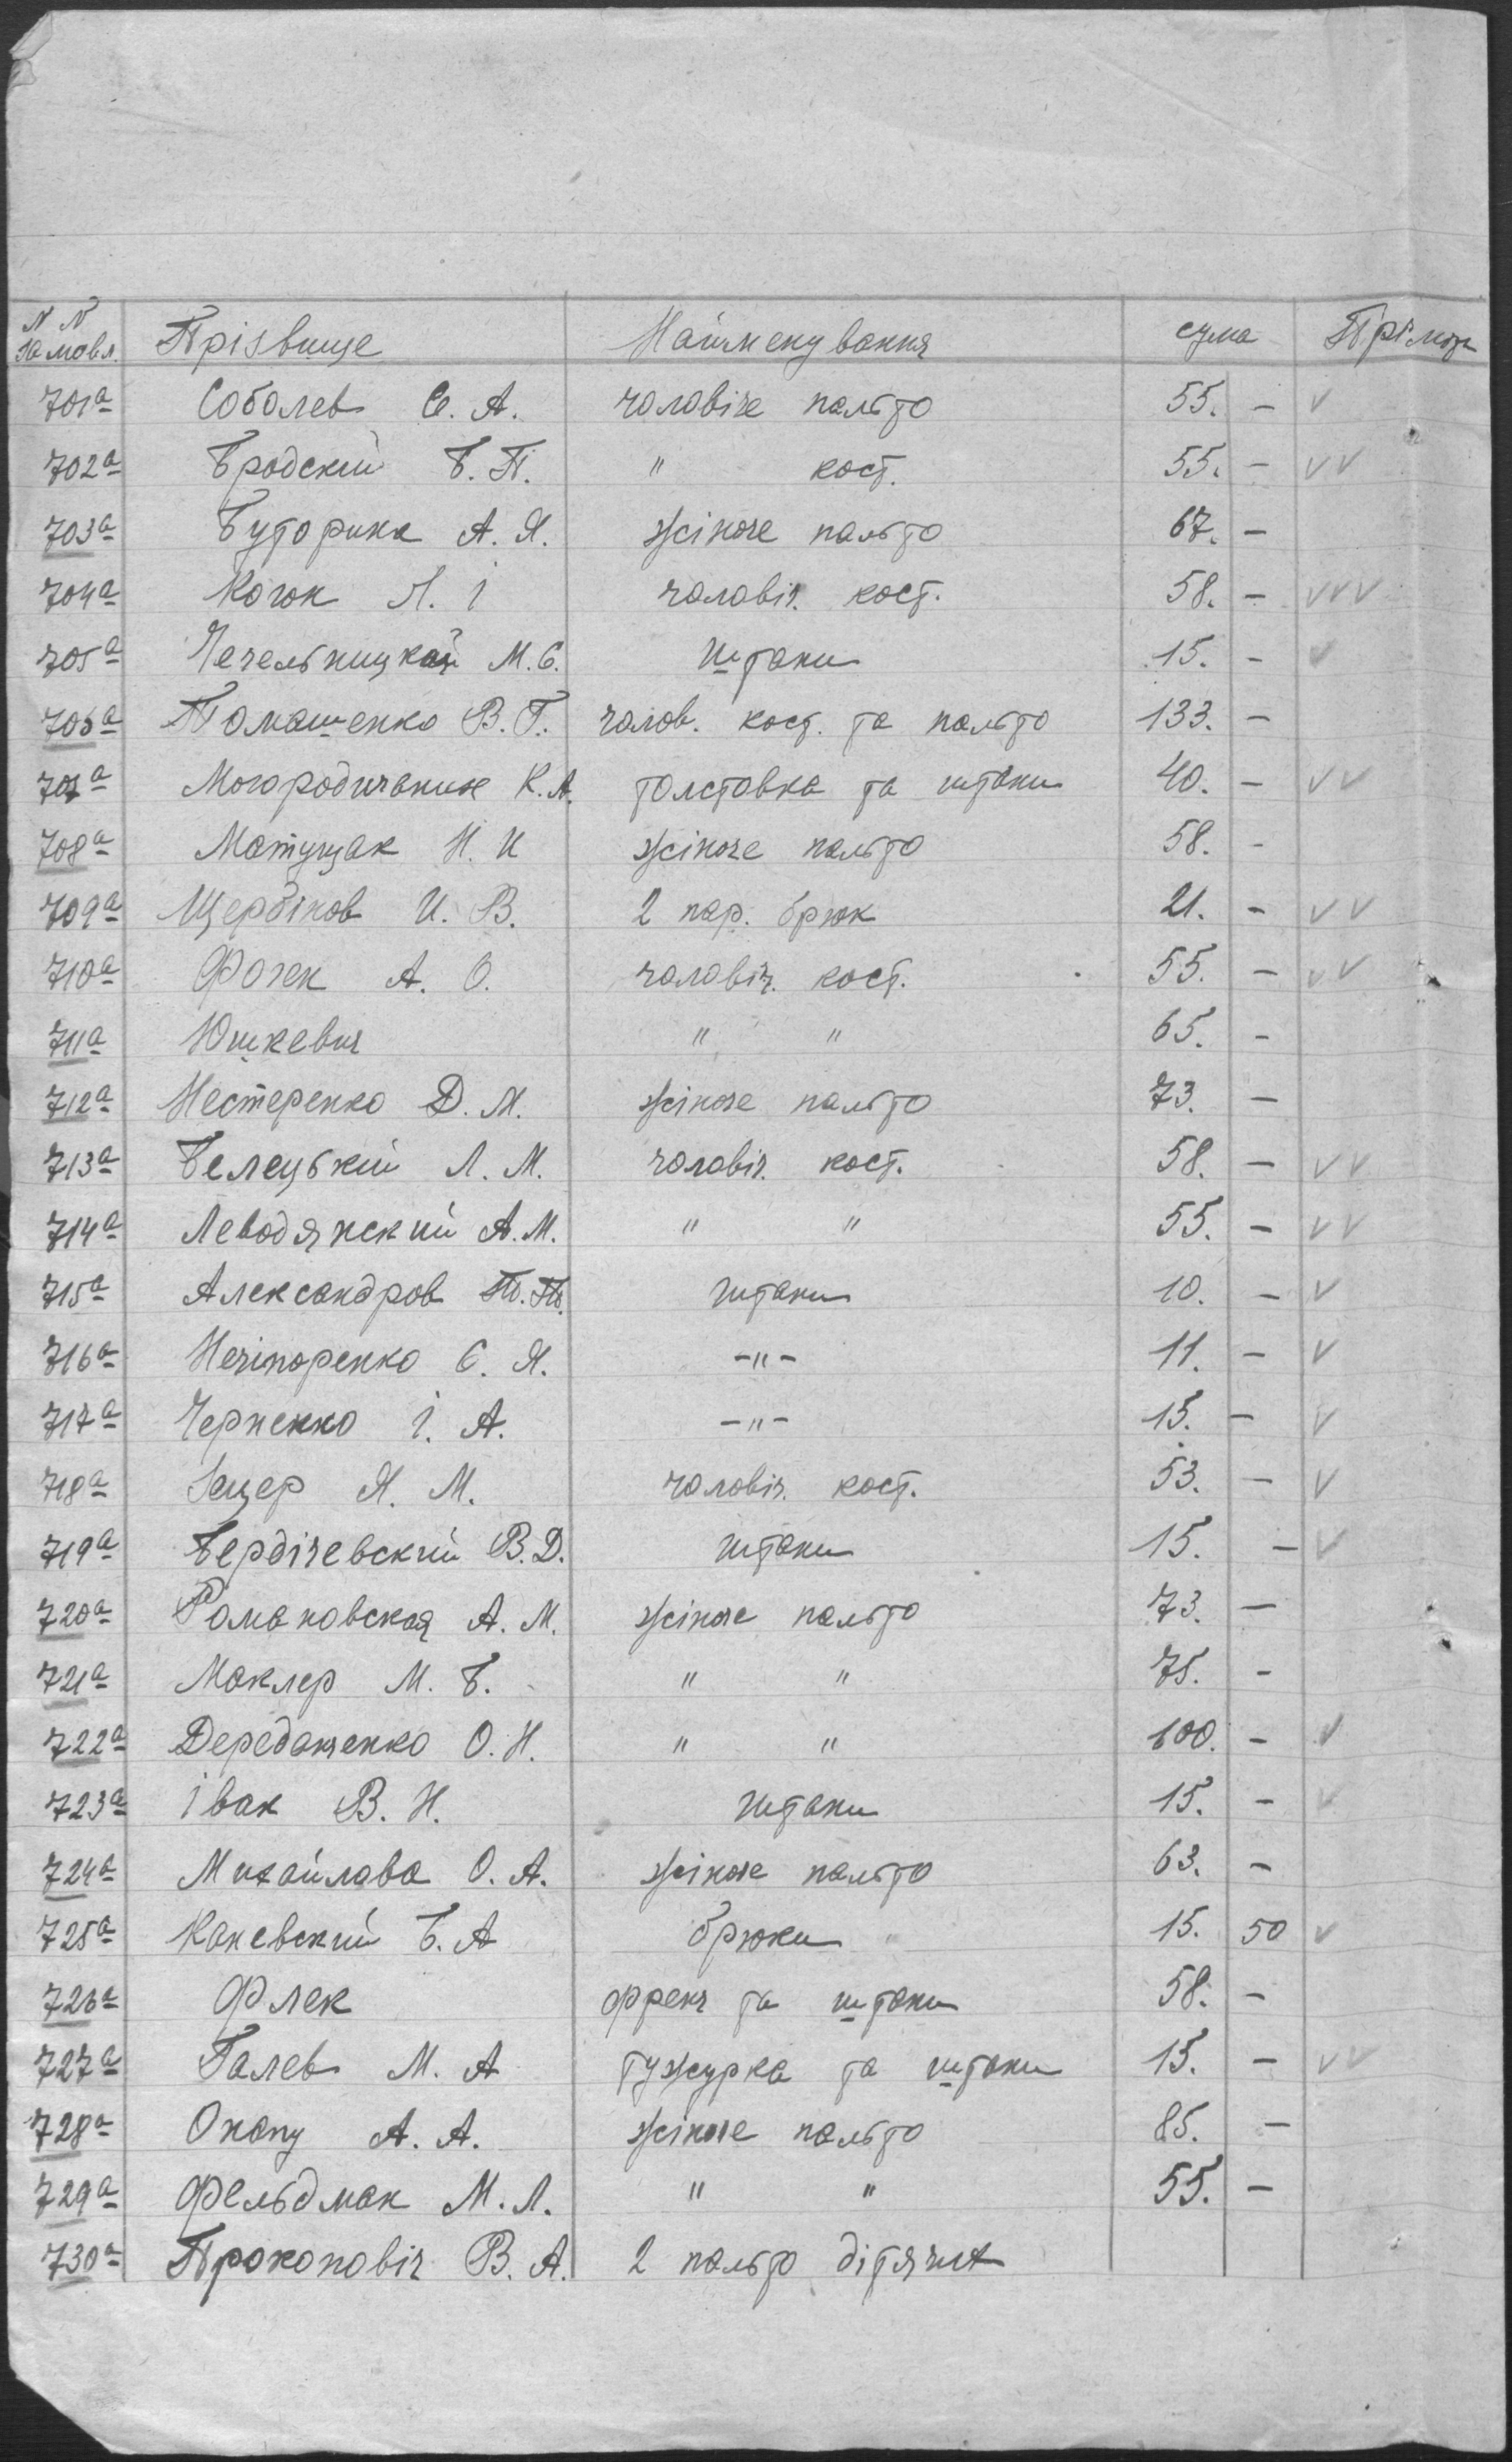 N N Замовл. Прізвище Найменування сума Прімоч
701а Соболев Є. А. чоловіче пальто 55. - v
702а Бродский Б. П. " кост. 55. - vv
703а Буторина А. Я. жіноче пальто 67. -
704а Когон Л. І чоловіч. кост. 58. - vvv
705а Печельницкая М. С. штани 15. - v
706а Томашенко В. Г. чолов. кост. та пальто 133. -
707а К. А. толстовка та штани 40. - vv
708а Матущак Н. И жіноче пальто 58. -
709а Щербіков И. В. 2 пар. брюк 21. - vv
710а А. О. чоловіч. кост. 55. - vv
711а Юшкевич " " 65. -
712а Нестеренко Д. М. жіноче пальто 73. -
713а Белецький Л. М. чоловіч. кост. 58. - vv
714а Леводянский А. М. " " 55. - vv
715а Александров штани 10. - v
716а Нечіпоренко Є. Я. -"- 11. - v
717а Черненко І. А. -"- 15. - v
718а Зацер Я. М. чоловіч. кост. 53. - v
719а Бердічевский В. Д. штани 15. - v
720а Романовская А. М. жіноче пальто 73. -
721а Маклер М. Б. " " 75. -
722а О. Н. " " 100. - v
723а Івак В. Н. штани 15. - v
724а Михайлова О. А. жіноче пальто 63. -
725а Каневский Б. А брюки 15. 50 v
726а Флек френч та штани 58. -
727а Галев М. А тужурка та штани 15. - vv
728а Окопу А. А. жіноче пальто 85. -
729а Фельдман М. Л. " " 55. -
730а Прокоповіч В. А. 2 пальто дітячих